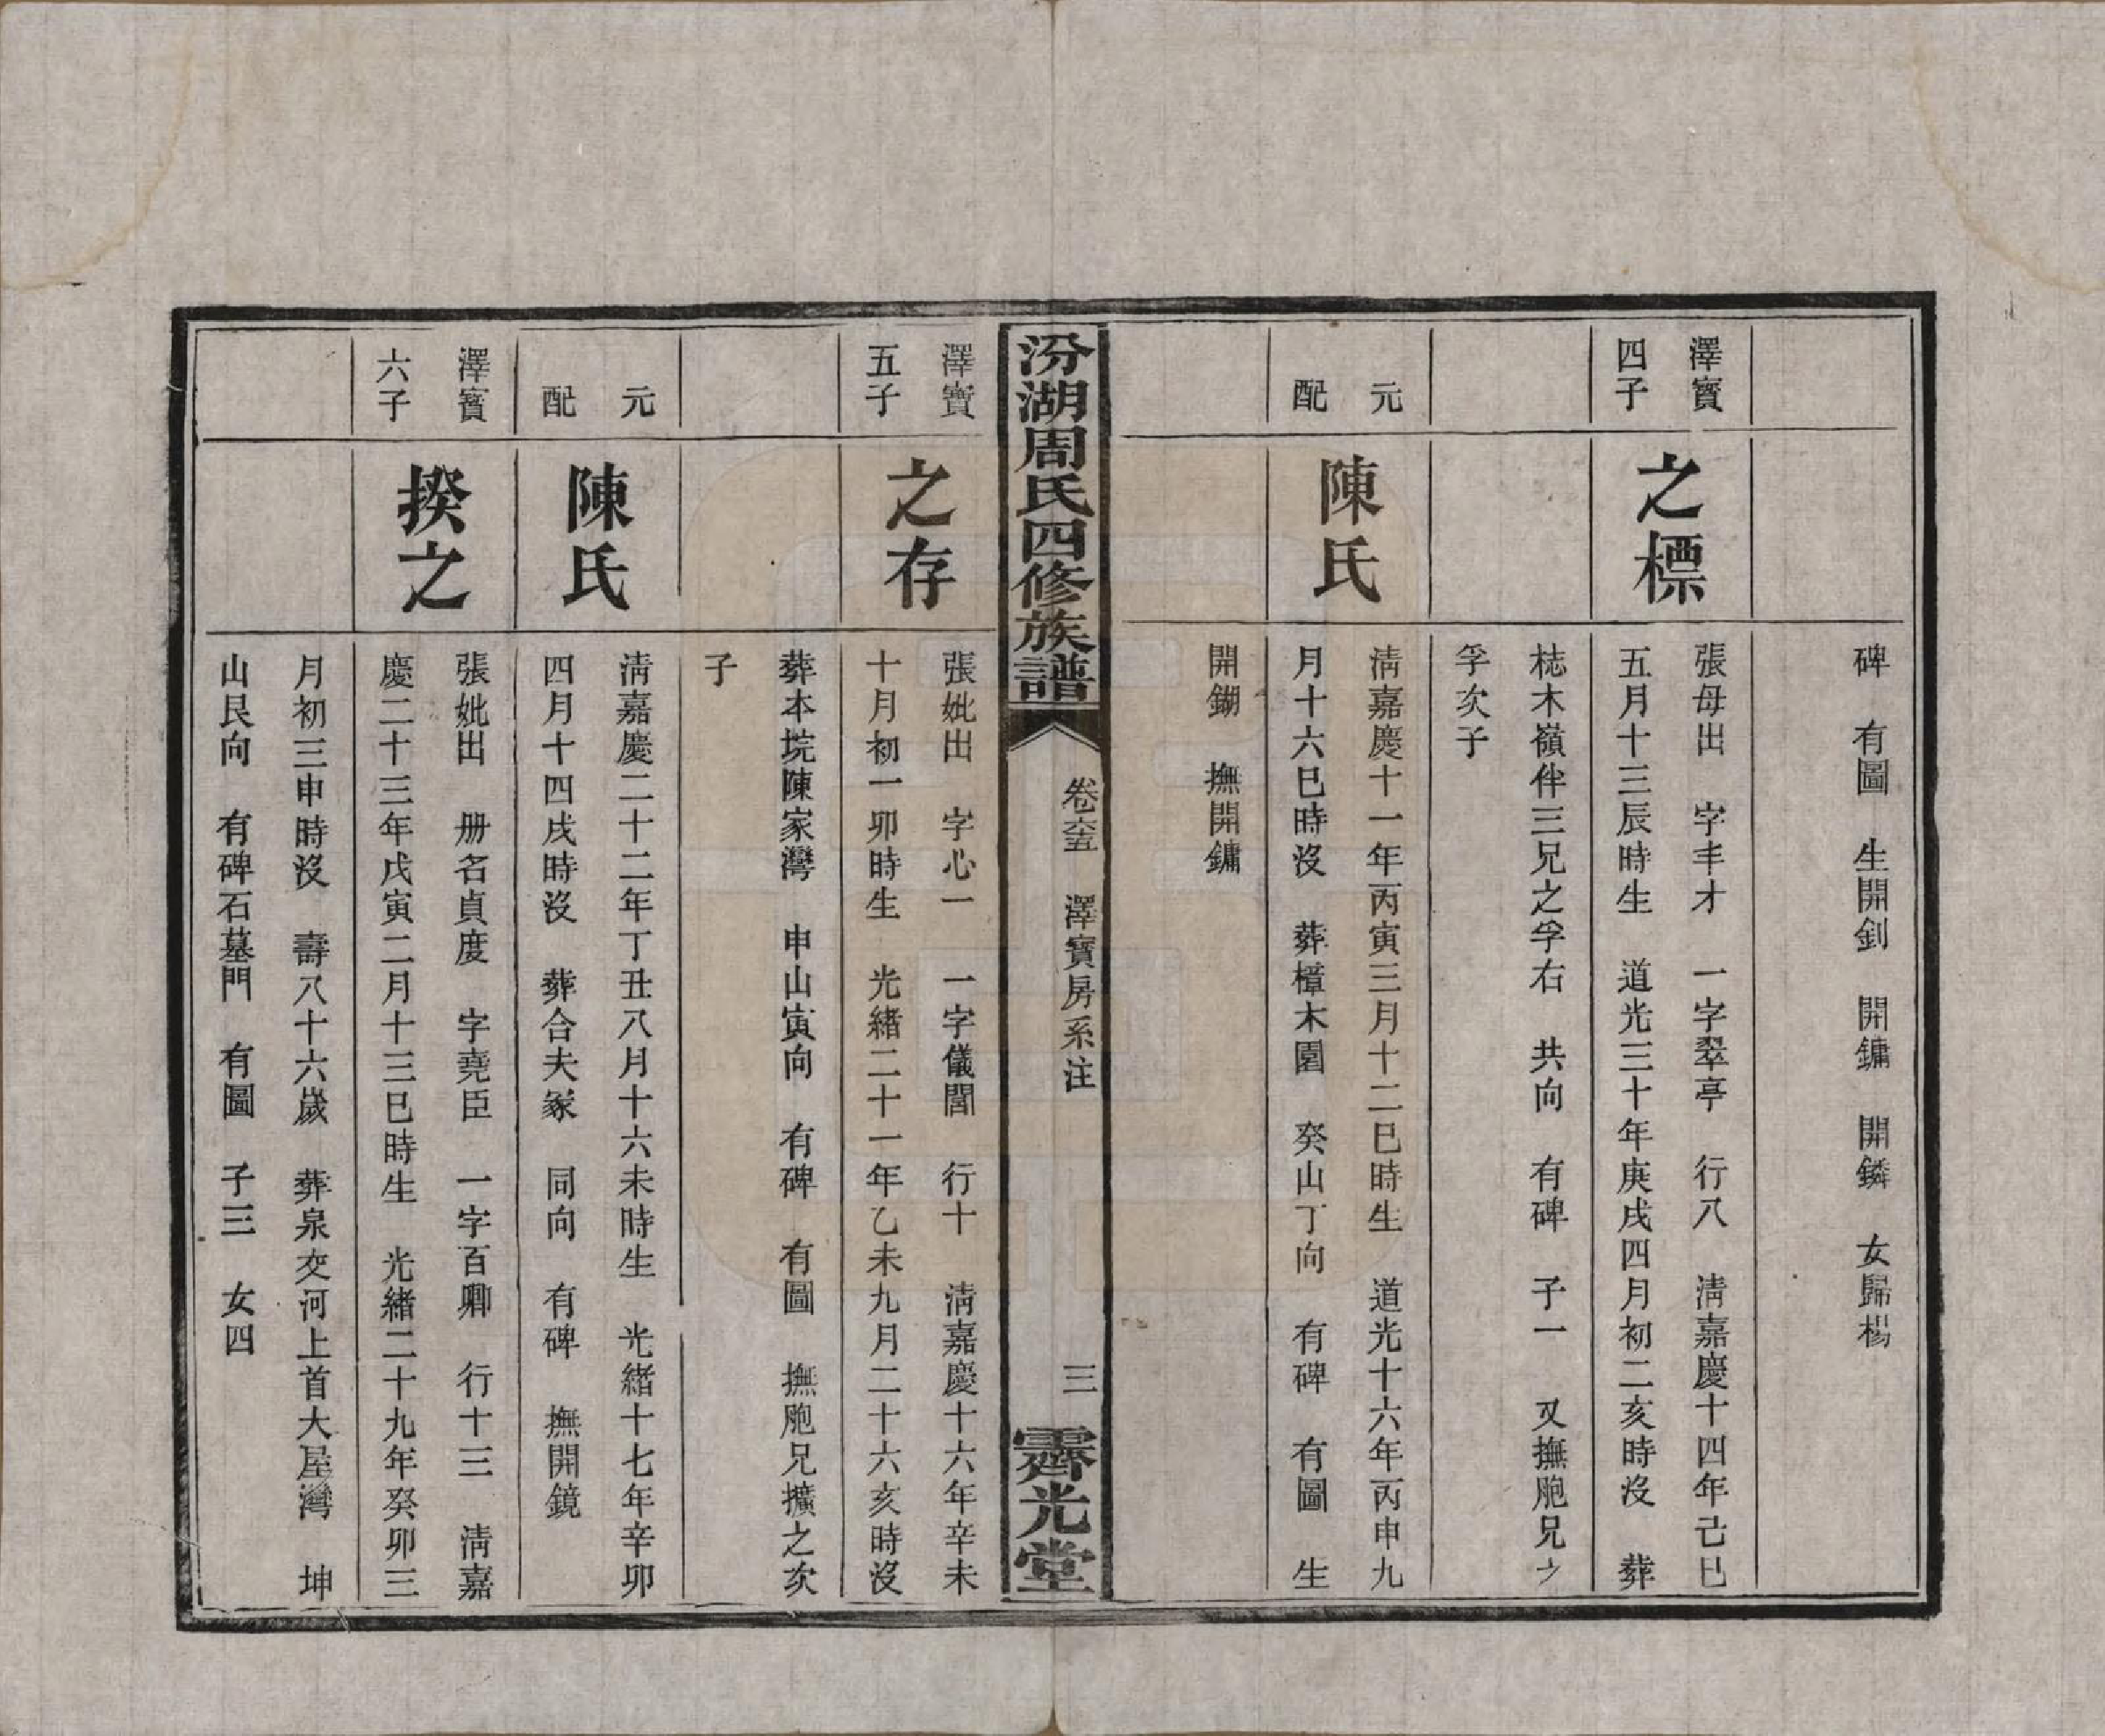 碑　有圖　生開釗　開鏞　開鏻　女歸楊
澤寶
四子
之標
張母出　字丰才　一字翠亭　行八　清嘉慶十四年己巳
五月十三辰時生　道光三十年庚戌四月初二亥時沒　葬
梽木嶺伴三兄之孚右　共向　有碑　子一　又撫胞兄之
孚次子
元
配
陳氏
清嘉慶十一年丙寅三月十二巳時生　道光十六年丙申九
月十六巳時沒　葬樟木園　癸山丁向　有碑　有圖　生
開鎙　撫開鏞
汾湖周氏四修族譜
卷六十五　澤寶房系注
三
霽光堂
澤寶
五子
之存
張妣出　字心一　一字儀閣　行十　清嘉慶十六年辛未
十月初一卯時生　光緒二十一年乙未九月二十六亥時沒
葬本垸陳家灣　申山寅向　有碑　有圖　撫胞兄擴之次
子
元
配
陳氏
清嘉慶二十二年丁丑八月十六未時生　光緒十七年辛卯
四月十四戌時沒　葬合夫冢　同向　有碑　撫開鏡
澤寶
六子
揆之
張妣出　册名貞度　字堯臣　一字百卿　行十三　清嘉
慶二十三年戊寅二月十三巳時生　光緒二十九年癸卯三
月初三申時沒　壽八十六歲　葬泉交河上首大屋灣　坤
山艮向　有碑石墓門　有圖　子三　女四